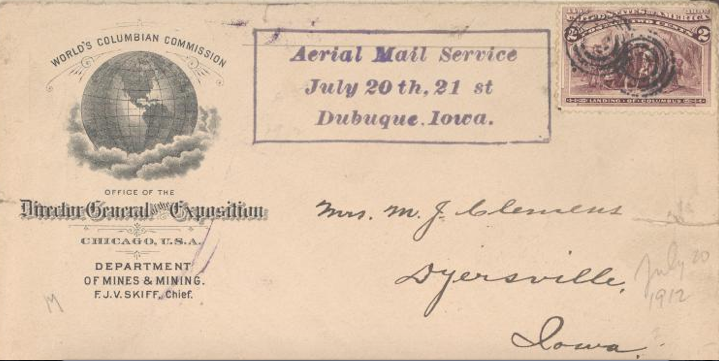 WORLD'S COLUMBIAN COMMISSION
OFFICE OF THE
Director General of the Exposition
CHICAGO, U.S.A.
DEPARTMENT
OF MINES & MINING.
F.J.V. SKIFF, Chief.
Aerial Mail Service
July 20th, 21 st
Dubuque. Iowa.
1492 UNITED STATES OF AMERICA 1892
2 TWO CENTS 2
LANDING OF COLUMBUS
Mrs. M. J. Clemens
Dyersville,
Iowa.
July 20
1912
M